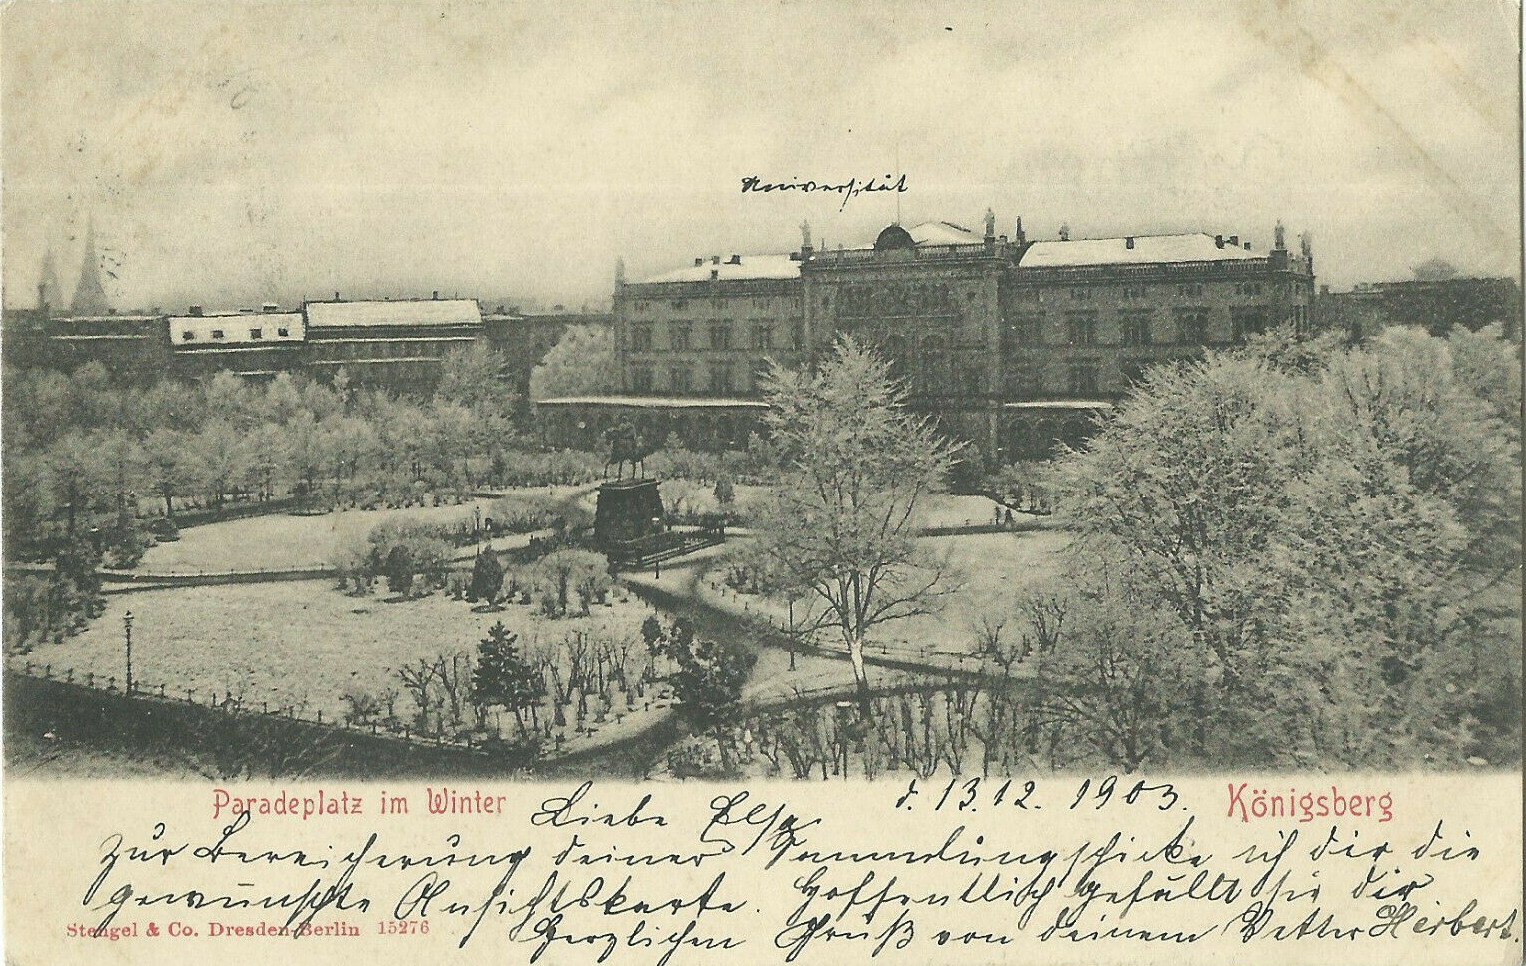 Universität
Paradeplatz im Winter
d. 13.12.1903.
Königsberg
Liebe Elsa.
Zur Bereicherung deiner Sammlung schicke ich dir die
gewünschte Ansichtskarte. Hoffentlich gefällt sie dir.
Herzlichen Gruß von deinem Vetter Herbert.
Stengel & Co. Dresden-Berlin 15276